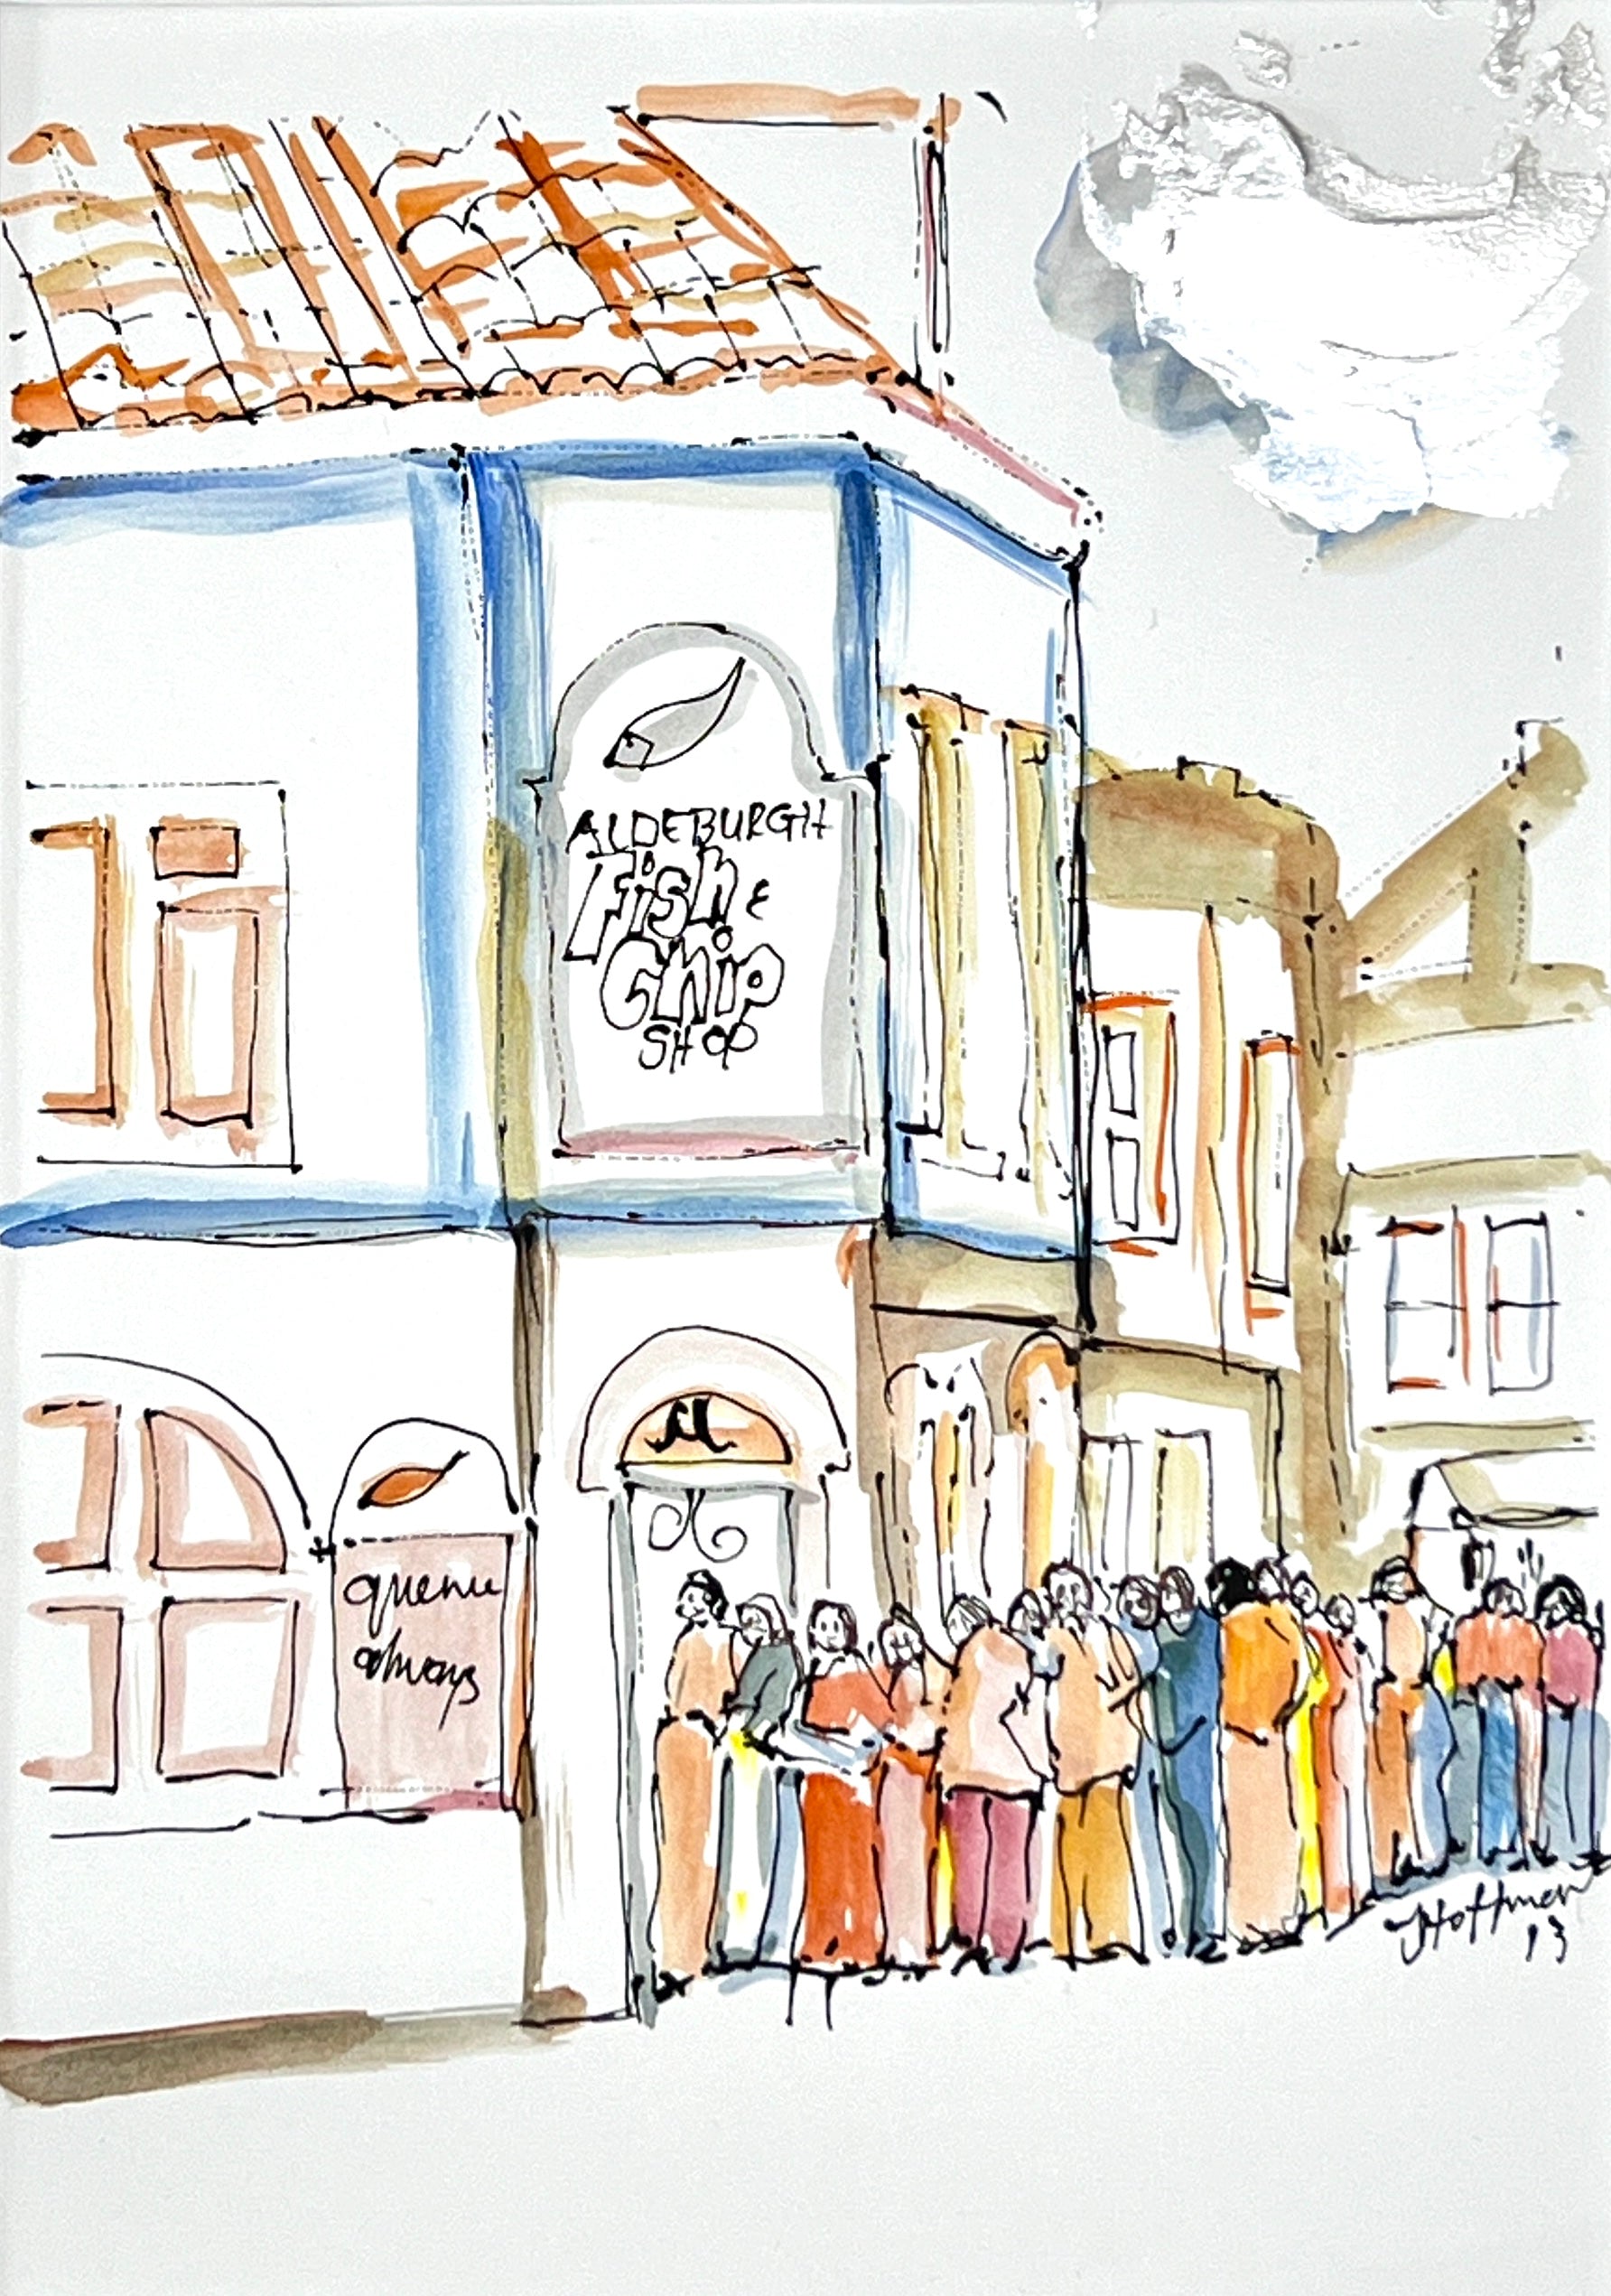 ALDEBURGH
Fish &
Chip
SHOP
queue
always
Hoffman
13